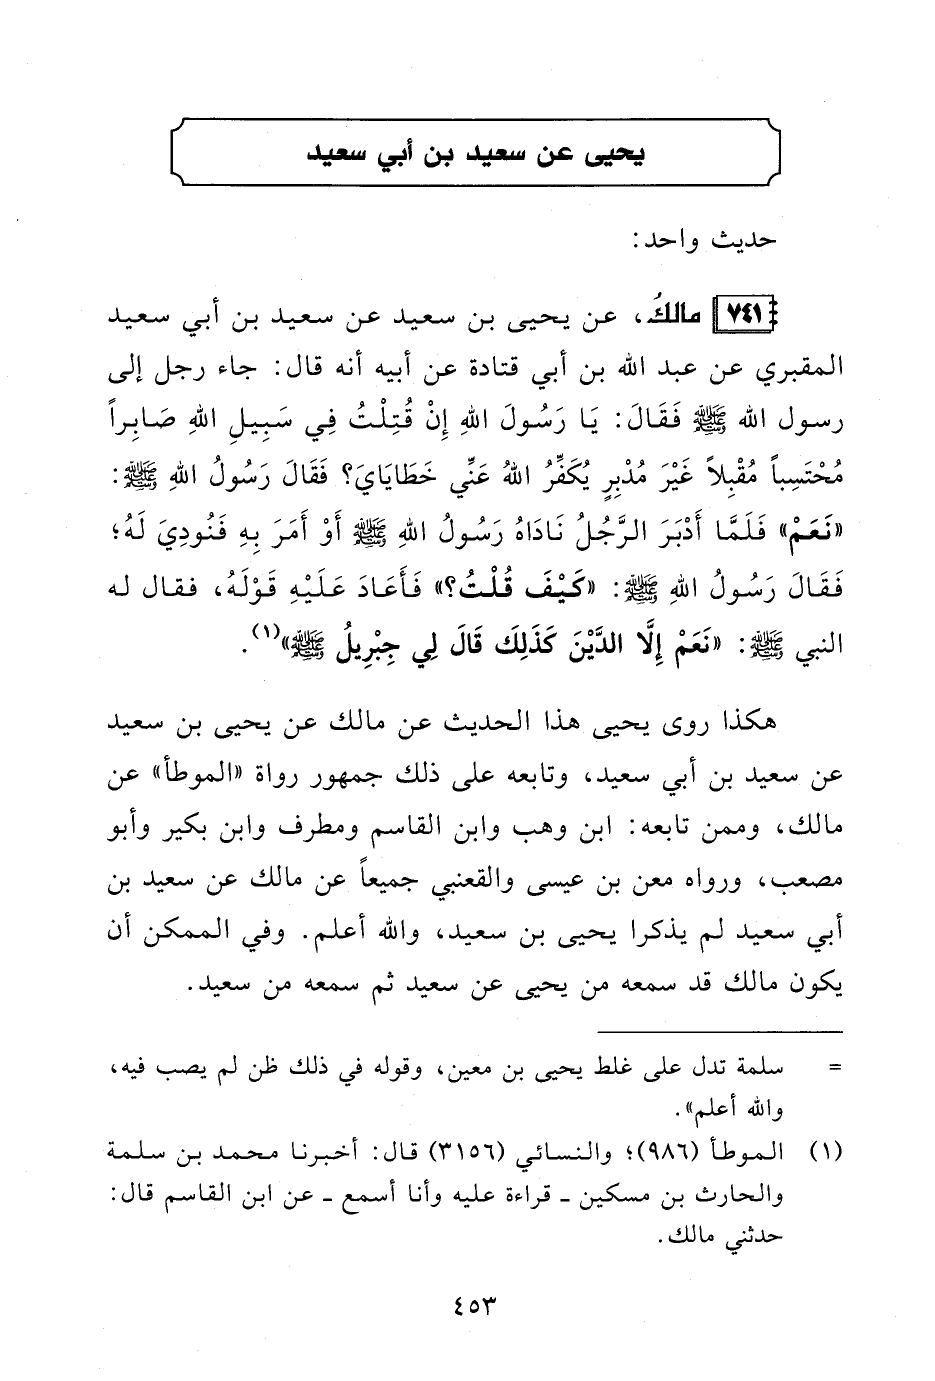 يحيى عن سعيد بن أبي سعيد
حديث واحد:
٧٤١ مالكُ، عن يحيى بن سعيد عن سعيد بن أبي سعيد
المقبري عن عبد الله بن أبي قتادة عن أبيه أنه قال: جاء رجل إلى
رسول الله ﷺ فَقَالَ: يَا رَسُولَ اللهِ إِنْ قُتِلْتُ فِي سَبِيلِ اللهِ صَابِراً
مُحْتَسِباً مُقْبِلاً غَيْرَ مُدْبِرٍ يُكَفِّرُ اللهُ عَنِّي خَطَايَايَ؟ فَقَالَ رَسُولُ اللهِ ﷺ:
«نَعَمْ» فَلَمَّا أَدْبَرَ الرَّجُلُ نَادَاهُ رَسُولُ اللهِ ﷺ أَوْ أَمَرَ بِهِ فَنُودِيَ لَهُ؛
فَقَالَ رَسُولُ اللهِ ﷺ: «كَيْفَ قُلْتُ؟» فَأَعَادَ عَلَيْهِ قَوْلَهُ، فقال له
النبي ﷺ: «نَعَمْ إِلَّا الدَّيْنَ كَذَلِكَ قَالَ لِي جِبْرِيلُ ﷺ»(١).
هكذا روى يحيى هذا الحديث عن مالك عن يحيى بن سعيد
عن سعيد بن أبي سعيد، وتابعه على ذلك جمهور رواة «الموطأ» عن
مالك، وممن تابعه: ابن وهب وابن القاسم ومطرف وابن بكير وأبو
مصعب، ورواه معن بن عيسى والقعنبي جميعاً عن مالك عن سعيد بن
أبي سعيد لم يذكرا يحيى بن سعيد، والله أعلم. وفي الممكن أن
يكون مالك قد سمعه من يحيى عن سعيد ثم سمعه من سعيد.
= سلمة تدل على غلط يحيى بن معين، وقوله في ذلك ظن لم يصب فيه،
والله أعلم».
(١) الموطأ (٩٨٦)؛ والنسائي (٣١٥٦) قال: أخبرنا محمد بن سلمة
والحارث بن مسكين ـ قراءة عليه وأنا أسمع ـ عن ابن القاسم قال:
حدثني مالك.
٤٥٣